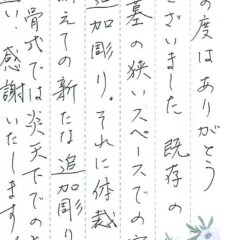 の度はありがとう
ございました 既存の
墓の狭いスペースでの
追加彫り。それに体裁
えての新たな追加彫り
骨式では炎天下での
い感謝いたします